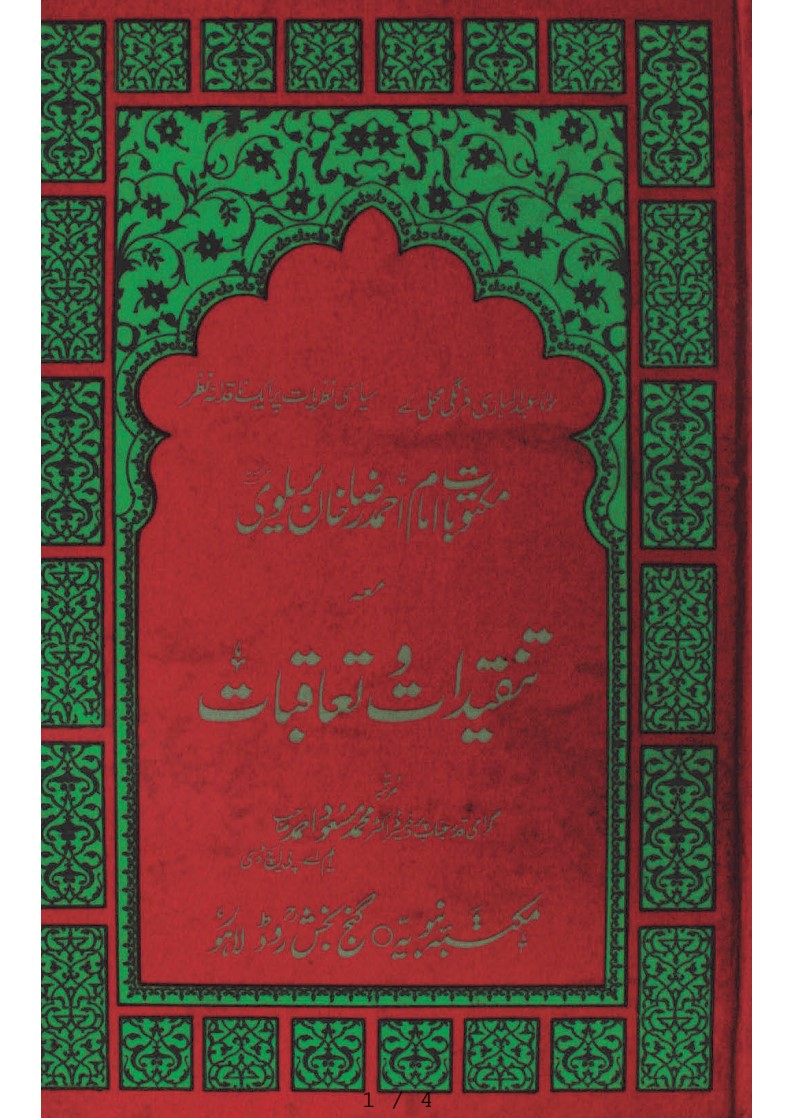 مولانا عبدالباری فرنگی محلی کے سیاسی نظریات پر ایک ناقدانہ نظر
مکتوبات امام احمد رضا خان بریلوی
معہ
تنقیدات و تعاقبات
مرتبہ
گرامی قدر جناب پروفیسر ڈاکٹر محمد مسعود احمد صاحب
ایم اے پی ایچ ڈی
مکتبہ نبویہ ○ گنج بخش روڈ لاہور
1 / 4